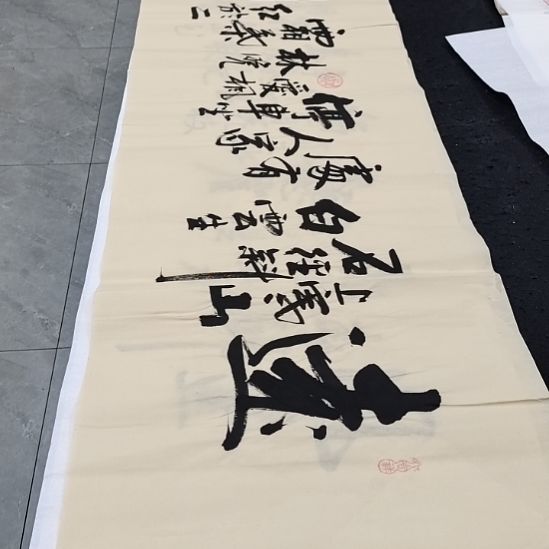 遠
上寒山
石徑斜
白雲生
處有
人家
停車坐
愛楓
林晚
霜葉
紅於二